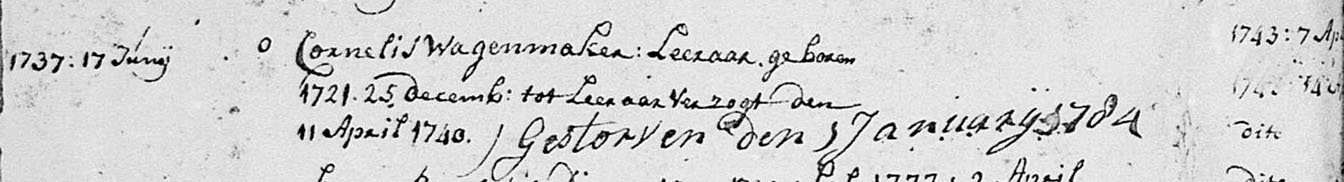 1737: 17 Junij o Cornelis Wagenmaker: Leeraar. geboren
1721. 25 Decemb: tot Leeraar Verzogt den
11 April 1740. Gestorven den 5 Januarij 1784
1743: 7 Ap
dito
1777: 2 April
dito